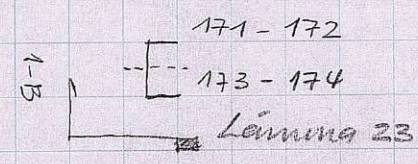 171 - 172
173 - 174
1-B
Lámina 23